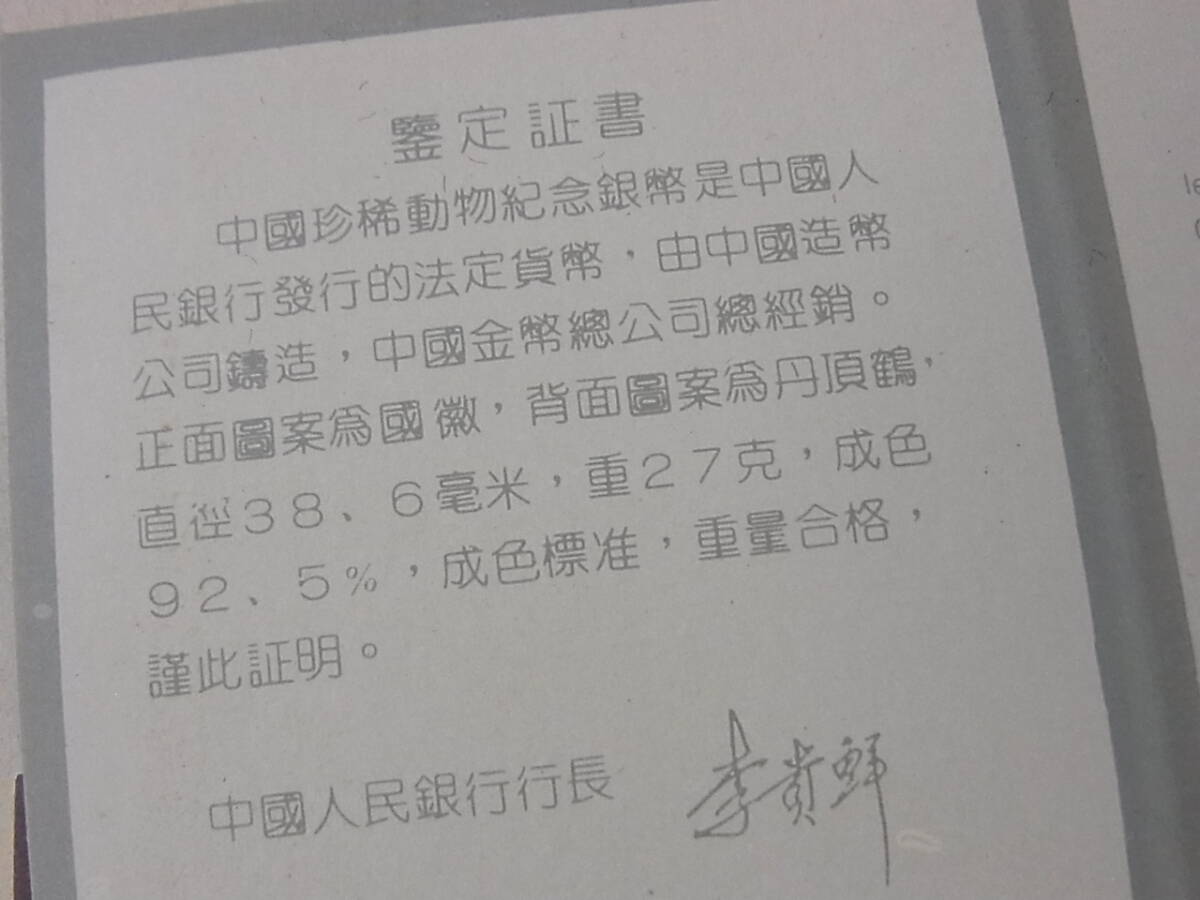 鑒定証書
中國珍稀動物紀念銀幣是中國人
民銀行發行的法定貨幣，由中國造幣
公司鑄造，中國金幣總公司總經銷。
正面圖案為國徽，背面圖案為丹頂鶴，
直徑38、6毫米，重27克，成色
92、5%，成色標准，重量合格，
謹此証明。
中國人民銀行行長 李貴鮮